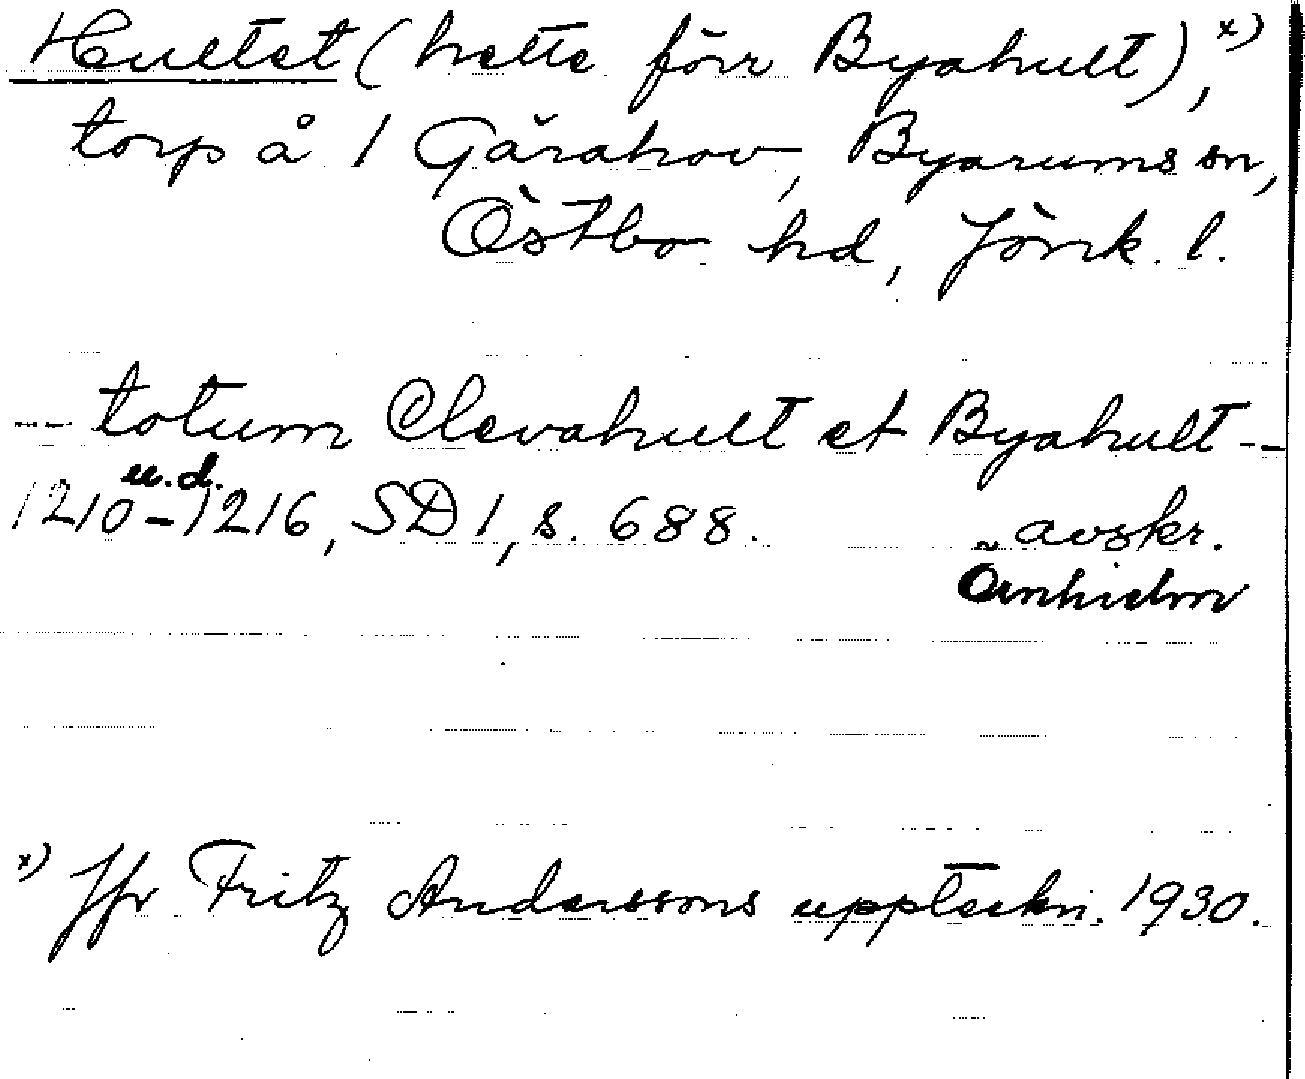 Hultet (hette förr Byahult),x)
torp å 1 Gårahov, Byarums sn,
Östbo hd, Jönk. l.
-- totum Clevahult et Byahult --
u.d.
1210-1216, SD 1, s. 688. avskr.
Örnhielm
x) Jfr Fritz Anderssons uppteckn. 1930.